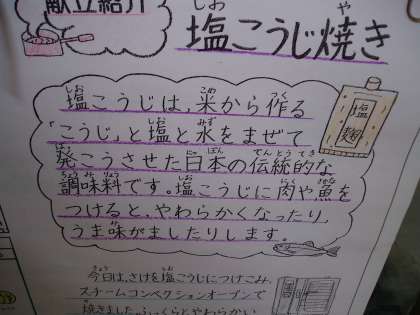 献立紹介
塩こうじ焼き
塩こうじは、米から作る
「こうじ」と塩と水をまぜて
発こうさせた日本の伝統的な
調味料です。塩こうじに肉や魚を
つけると、やわらかくなったり、
うま味がましたりします。
塩麹
今日は、さけを塩こうじにつけこみ、
スチームコンベクションオーブンで
焼きました。ふっくらとやわらかい